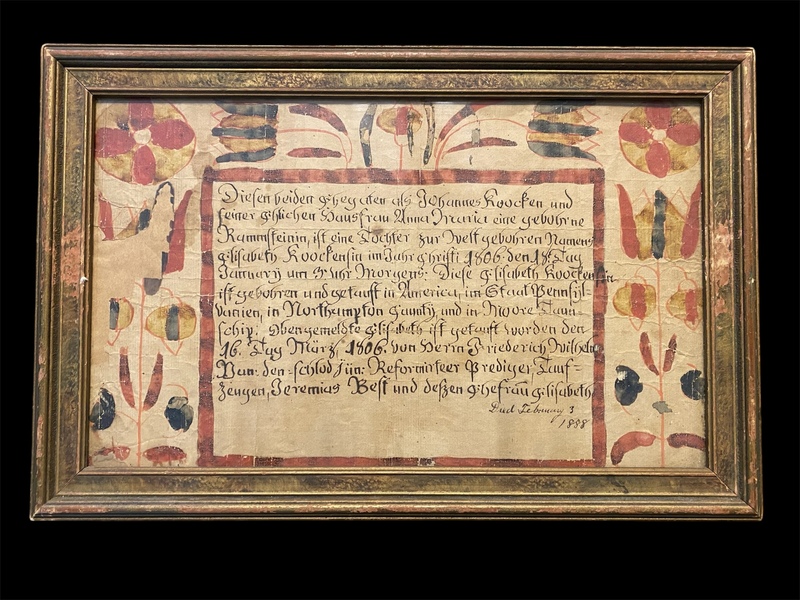 Diesen beiden Ehegaten als Johannes Koocken und
seiner Ehlichen Hausfrau Anna Maria eine gebohrne
Rammsteinin, ist eine Tochter zur Welt gebohren Namens
Elisabeth Koockensin im Jahr Christi 1806 den 18t Tag
January um 3 Uhr Morgens: Diese Elisabeth Koockensin
ist gebohren und getauft in America, im Staat Pennsyl-
vanien, in Northampton Caunty, und in Moore Taun-
schip. Obengemeldte Elisabeth ist getauft worden den
16. Tag Märtz 1806. von Herrn Friederich Wilhelm
Van: den=schlod jün: Reformirteer Prediger Tauf-
zeugen, Jeremias Best und deßen Ehefrau Elisabeth
Died February 3
1888